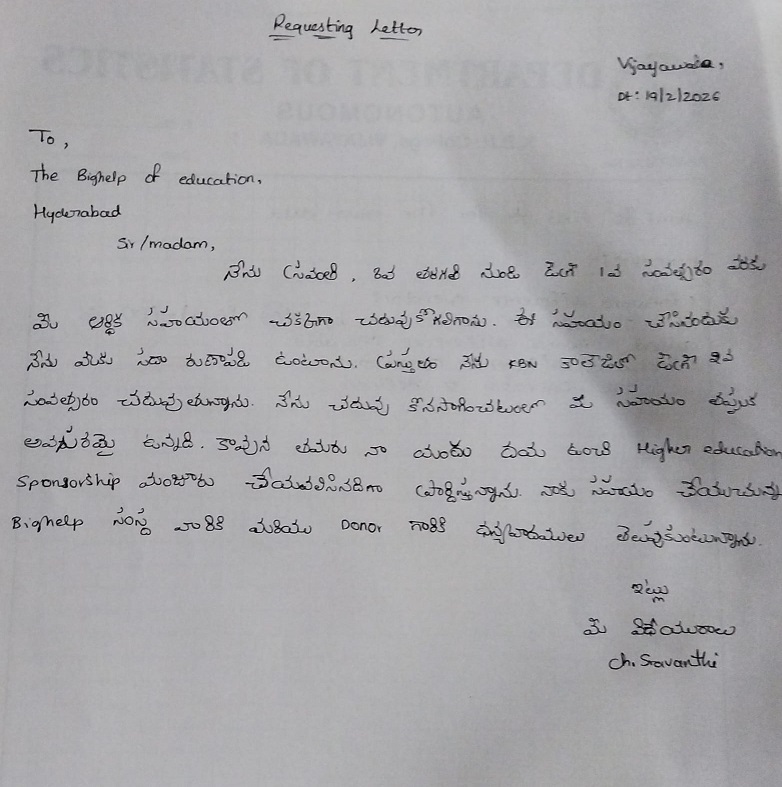 Requesting Letter
Vijayawada,
Dt: 19/2/2026
To,
The Bighelp of education,
Hyderabad
Sir/madam,
నేను స్రవంతి, 8వ తరగతి నుండి డిగ్రీ 1వ సంవత్సరం వరకు
మీ ఆర్థిక సహాయంతో చక్కగా చదువుకోగలిగాను. ఈ సహాయం చేసినందుకు
నేను మీకు సదా రుణపడి ఉంటాను. ప్రస్తుతం నేను KBN కాలేజిలో డిగ్రీ 2వ
సంవత్సరం చదువుతున్నాను. నేను చదువు కొనసాగించుటలో మీ సహాయం తప్పక
అవసరమై ఉన్నది. కావున తమరు నా యందు దయ ఉంచి Higher education
Sponsorship మంజూరు చేయవలసినదిగా ప్రార్థిస్తున్నాను. నాకు సహాయం చేయుచున్న
Bighelp సంస్థ వారికి మరియు Donor గారికి ధన్యవాదములు తెలుపుకుంటున్నాను.
ఇట్లు
మీ విధేయురాలు
Ch. Sravanthi